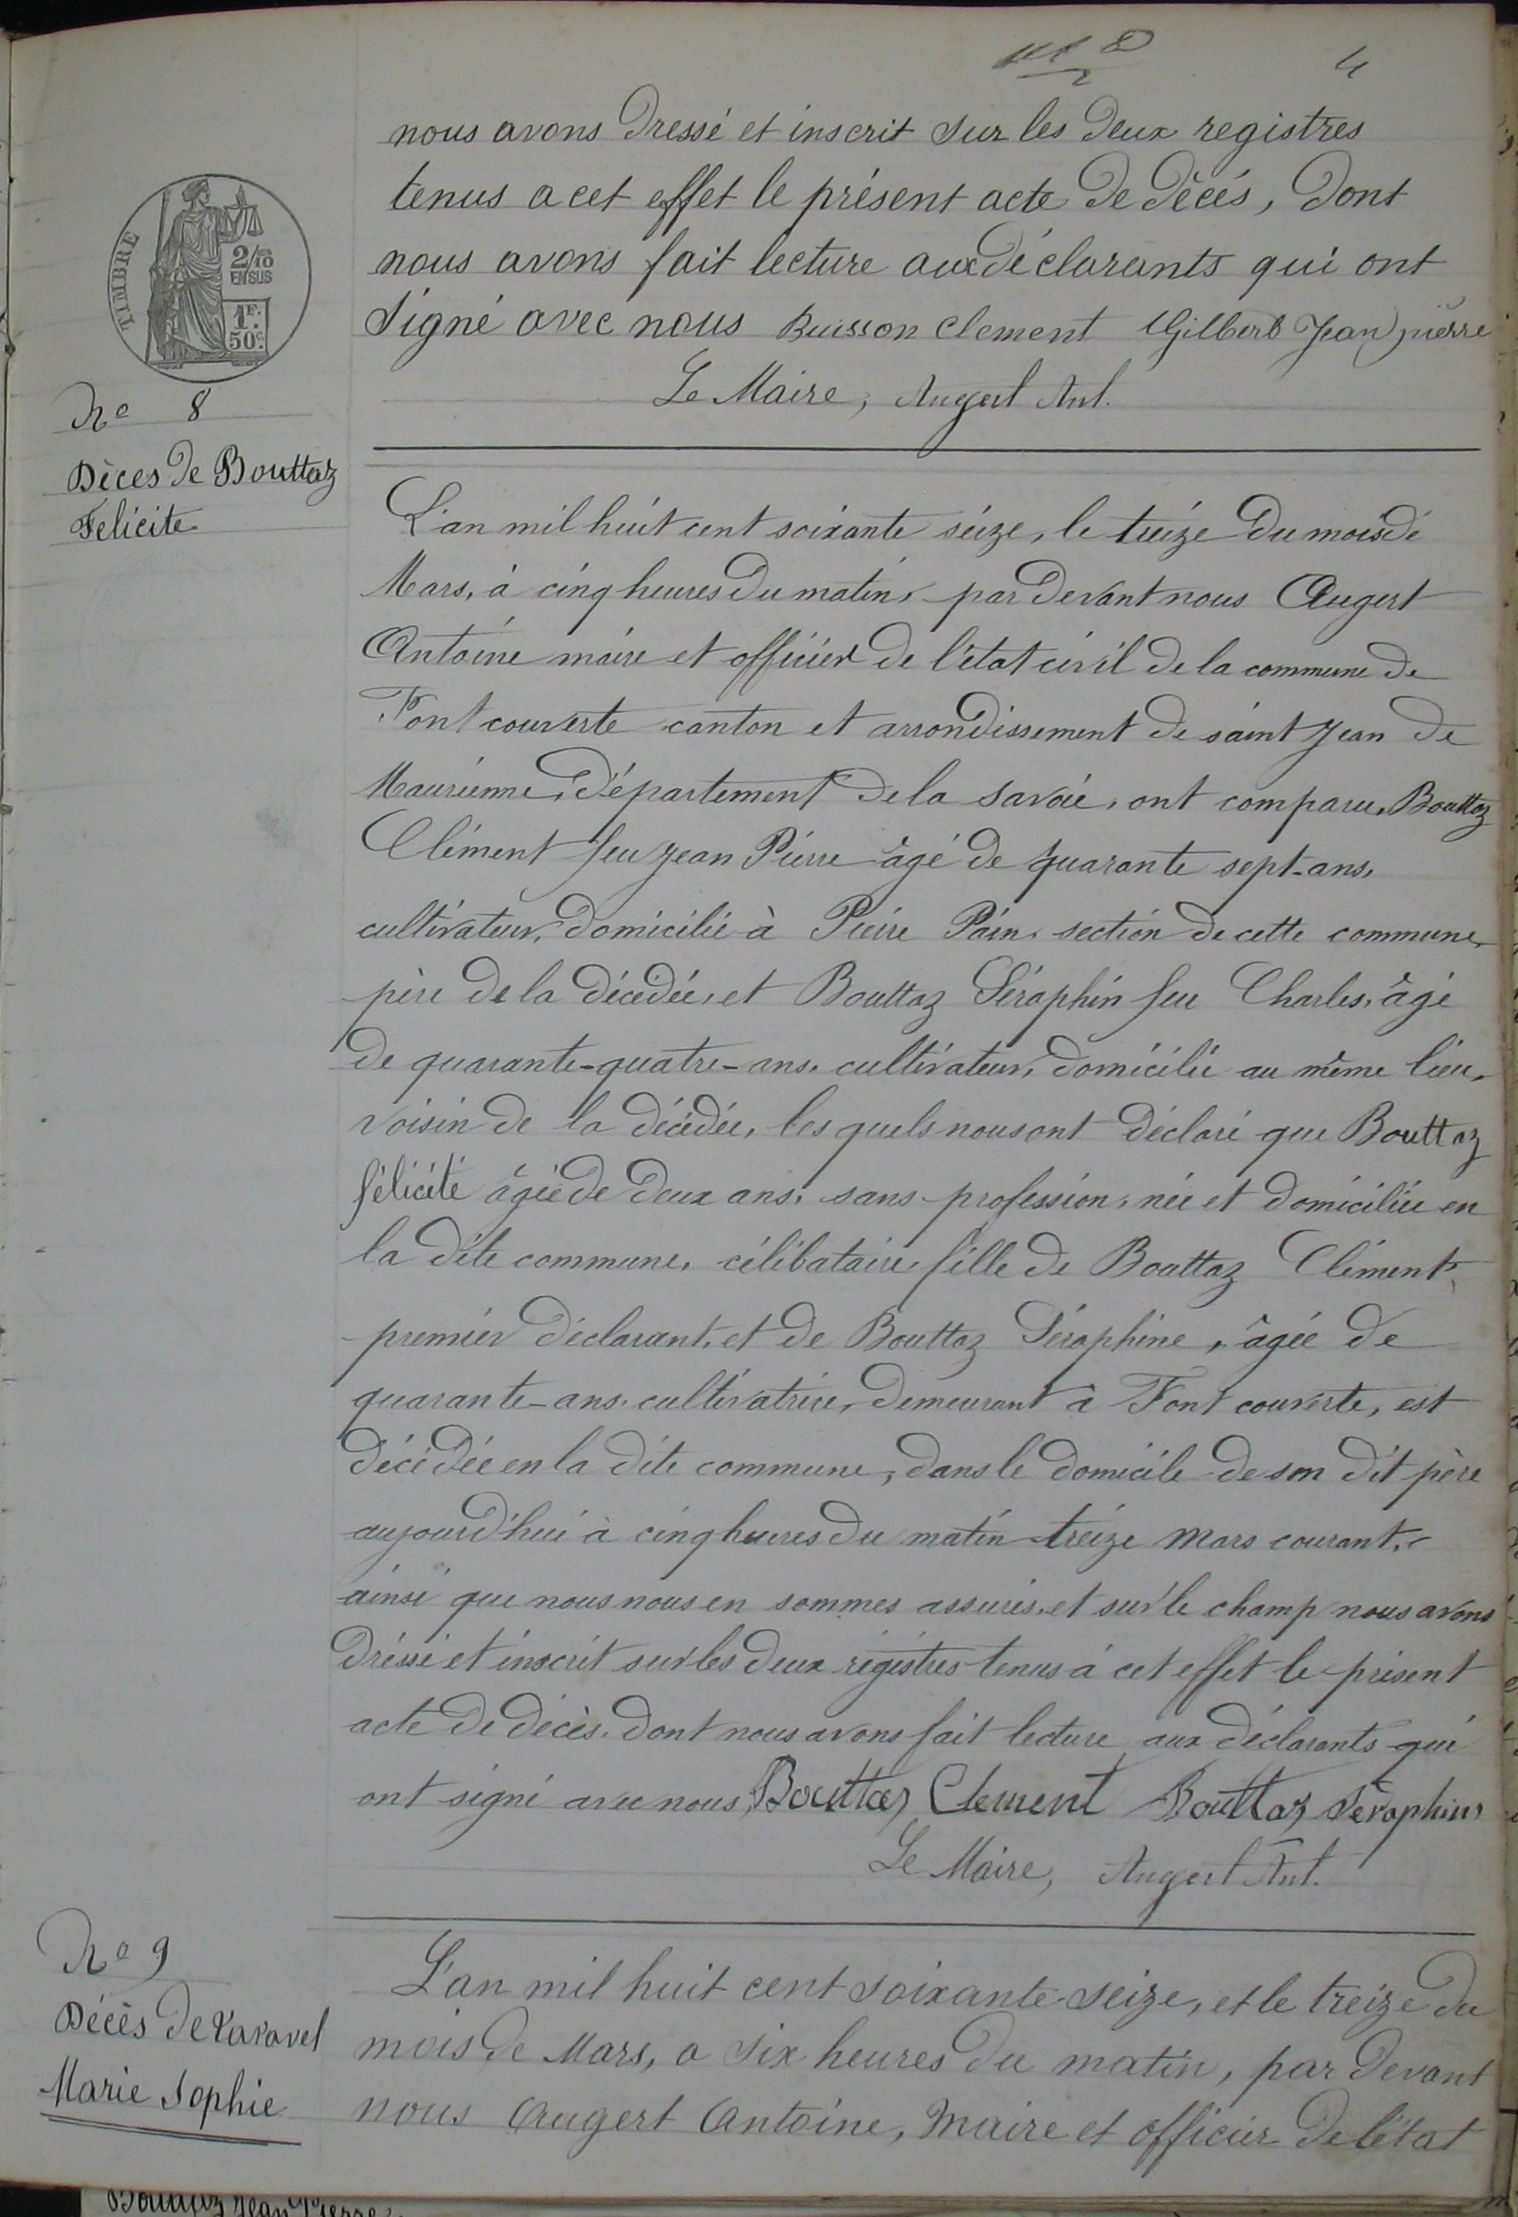 4
nous avons dressé et inscrit sur les deux registres
tenus a cet effet le présent acte de décés, dont
nous avons fait lecture aux déclarants qui ont
signé avec nous Buisson Clement Gilbert Jean pierre
Le Maire, Augert Ant.
TIMBRE
2/10
EN SUS
1F.
50c.
No 8
Décès de Bouttaz
Felicite
L'an mil huit cent soixante seize, le treize du mois de
Mars, à cinq heures du matin, par devant nous Augert
Antoine maire et officier de l'état civil de la commune de
Font couverte canton et arrondissement de saint Jean de
Maurienne, département de la Savoie, ont comparu, Bouttaz
Clément feu Jean Pierre âgé de quarante sept-ans,
cultivateur, domicilié à Pierre Pain, section de cette commune,
père de la décédée, et Bouttaz Séraphin feu Charles, âgé
de quarante-quatre-ans, cultivateur, domicilié au même lieu,
voisin de la décédée, les quels nous ont déclaré que Bouttaz
félicité âgée de deux ans, sans profession, née et domiciliée en
la dite commune, célibataire, fille de Bouttaz Clément,
premier déclarant, et de Bouttaz Séraphine, âgée de
quarante-ans, cultivatrice, demeurant à Font couverte, est
décédée en la dite commune, dans le domicile de son dit père
aujourd'hui à cinq heures du matin treize mars courant,
ainsi que nous nous en sommes assurés, et sur le champ nous avons
dressé et inscrit sur les deux registres tenus à cet effet le présent
acte de décès, dont nous avons fait lecture aux déclarants qui
ont signé avec nous, Bouttaz Clement Bouttaz Séraphin
Le Maire, Augert Ant.
No 9
Décès de Varavel
Marie Sophie
L'an mil huit cent soixante-seize, et le treize du
mois de Mars, a six heures du matin, par devant
nous Augert Antoine, Maire et officier de l'état
Bouttaz Jean Pierre